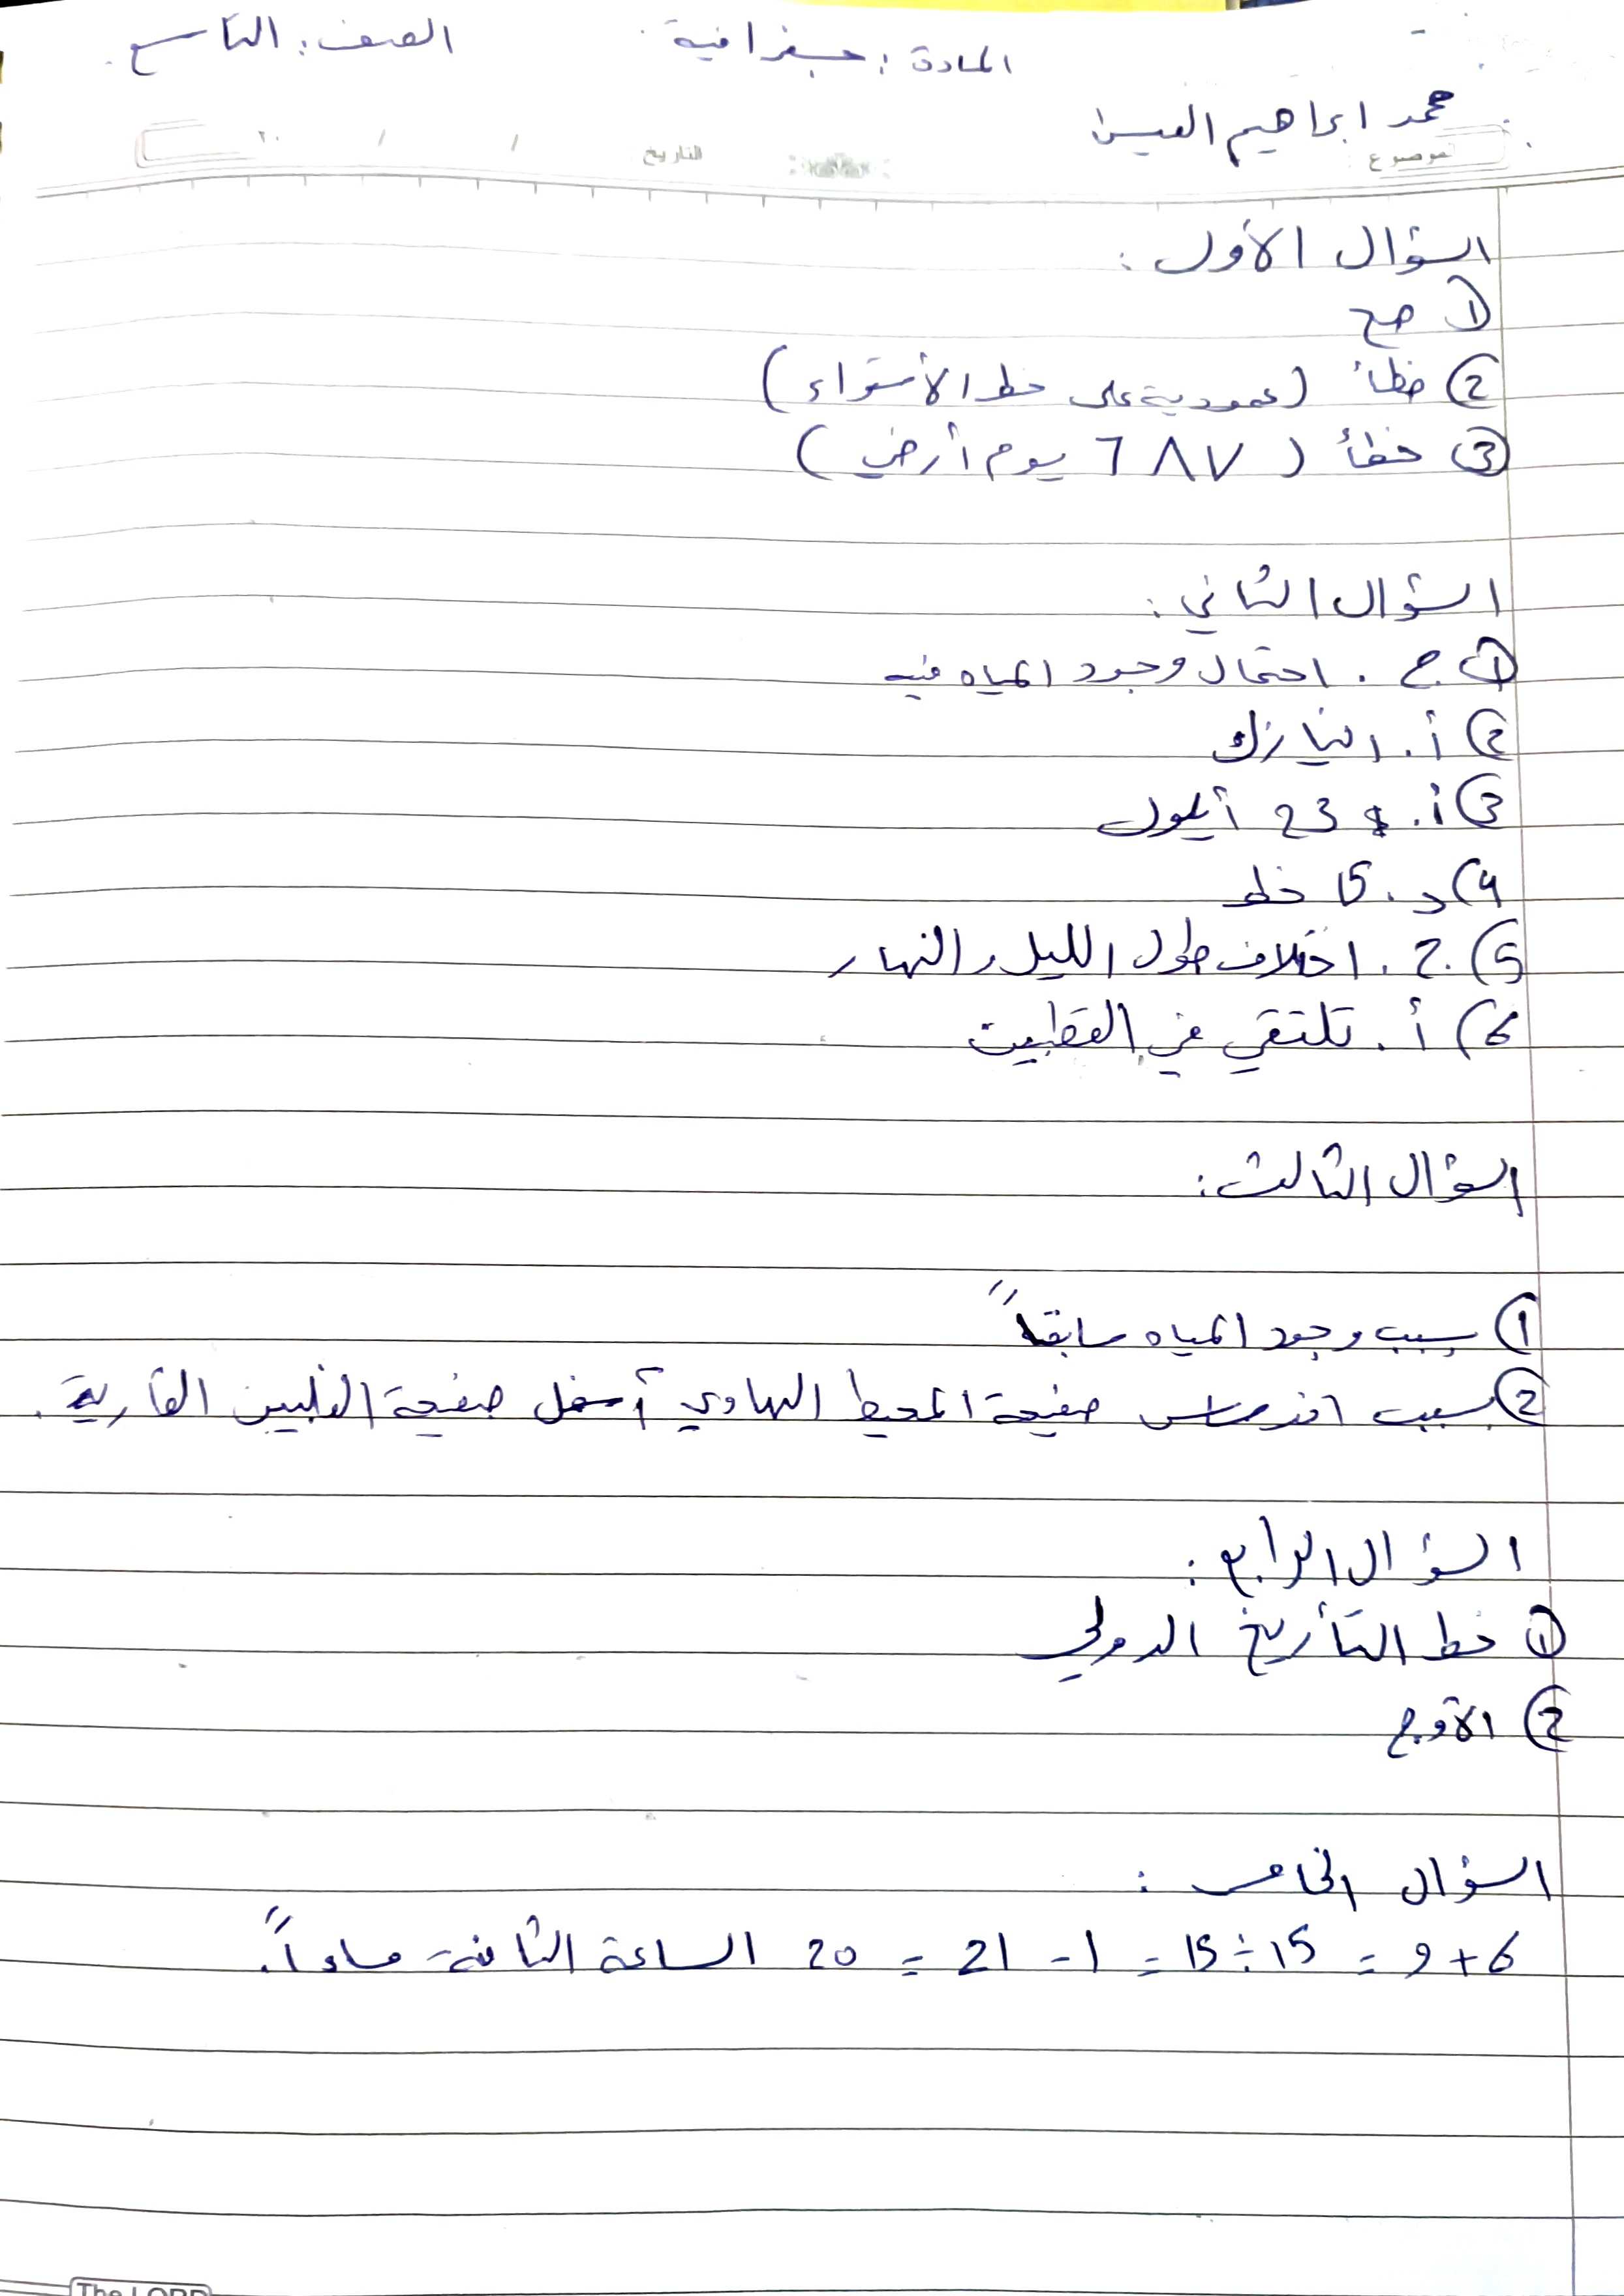 المادة : جغرافية الصف : التاسع
محمد ابراهيم العيسى
موضوع التاريخ / / ٢٠
السؤال الأول :
① صح
② خطأ (عمودية على خط الأستواء)
③ خطأ (٦٨٧ يوم أرضي)
السؤال الثاني :
① ج . احتمال وجود المياه فيه
② أ . النيازك
③ أ . 23 أيلول
4) د . 15 خط
5) ج . اختلاف طول الليل والنهار
6) أ . تلتقي في القطبين
السؤال الثالث :
① بسبب وجود المياه سابقاً
② بسبب انغماس صفيحة المحيط الهادي أسفل صفيحة الفلبين القارية .
السؤال الرابع :
① خط التأريخ الدولي
② الأوج
السؤال الخامس :
6 + 9 = 15 ÷ 15 = 1 - 21 = 20 الساعة الثامنة مساءاً .
The LORD